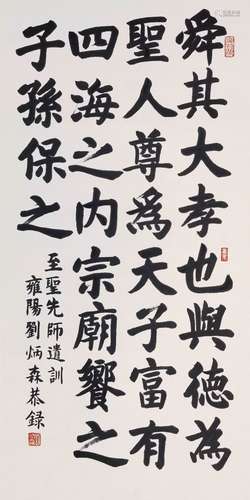 舜其大孝也與德為
聖人尊為天子富有
四海之内宗廟饗之
子孫保之
至聖先師遺訓
雍陽劉炳森恭録